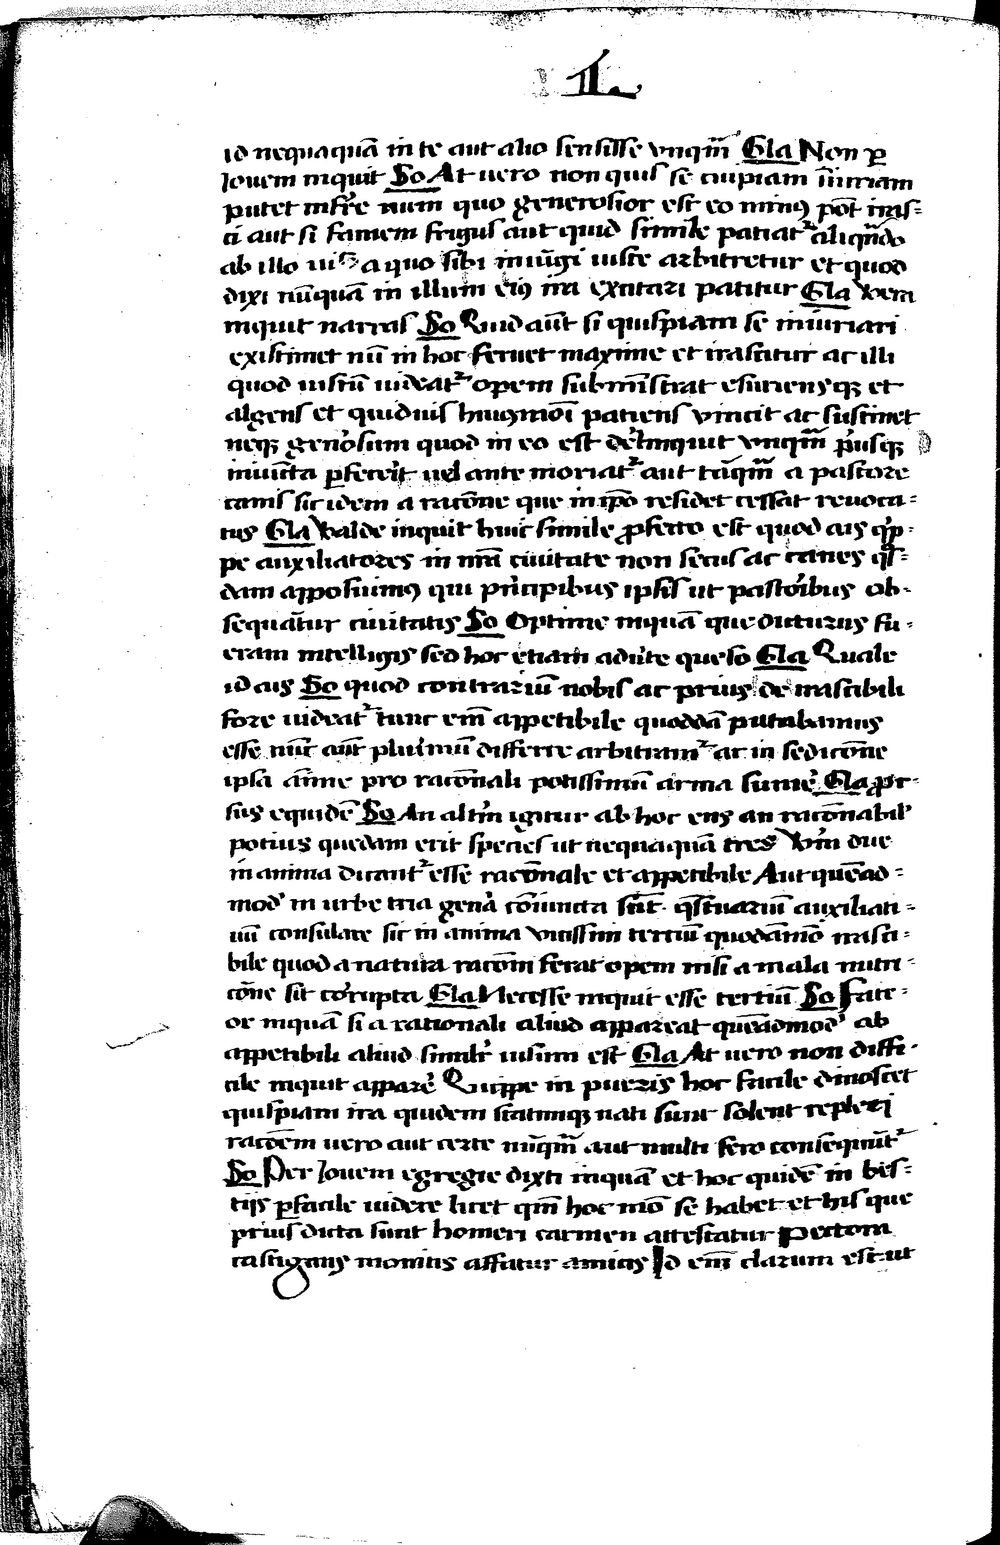 II.
id nequaquã in te aut alio sensisse vnqm̃ Gla Non ꝑ
Iouem inquit So At uero non quis se cuipiam iniuriam
putet infrre num quo generosior est eo minꝰ pot̃ iras⸗
ci aut si famem frigus aut quid simile patiatᷣ aliqn̄do
ab illo a quo sibi iniũgi iuste arbitretur et quod
dixi nũquã in illum eiꝰ ira excitari patitur Gla Vera
inquit narras So Quid aũt si quispiam se iniuriari
existimet nũ in hoc feruet maxime et irascitur ac illi
quod iustũ uideatᷣ opem subministrat esuriensqꝫ et
algens et quiduis huiꝰmoi patiens vincit ac sustinet
neqꝫ genosum quod in eo est delinquit vnqm̃ priusqꝫ
inuicta ꝑfecerit uel ante moriatᷣ aut tãqm̃ a pastore
canis sic idem a racõne que in ipõ residet cessat reuoca⸗
tus Gla Valde inquit huic simile ꝓfecto est quod ais qip⸗
pe auxiliatores in nrã ciuitate non secus ac canes qs⸗
dam apposuimꝰ qui principibus ipsis ut pastoribus ob⸗
sequãtur ciuitatis So Optime inquã que dicturus fu⸗
eram intelligis sed hoc etiam aduite queso Gla Quale
id ais So quod contrariũ nobis ac prius de irascibili
fore uideatᷣ tunc em̃ appetibile quoddã putabamus
esse nũc aũt plurimũ differre arbitramᷣ ac in sedicõne
ipsa aĩme pro racõnali potissimũ arma sumẽ Gla Pr⸗
sus equidẽ So An altm̃ igitur ab hoc ens an racõnabil'
potius quedam erit species ut nequaquã tres Vm̃ due
in anima dicantᷣ esse racõnale et appetibile Aut quẽad⸗
mod' in urbe tria gena cõiuncta sũt qstuariũ auxiliati⸗
uũ consulare sic in anima vicissim tertiũ quodãmõ irasci⸗
bile quod a natura racõni ferat opem nisi a mala nutri⸗
cõne sit corrupta Gla Necesse inquit esse tertiũ So Fate⸗
or inquã si a rationali aliud appareat quẽadmod' ab
appetibili aliud similir uisum est Gla At uero non diffi⸗
cile inquit apparẽ Quippe in pueris hoc facile dinoscet
quispiam ira quidem statimqꝫ nati sunt solent repleri
racõem uero aut certe nũqm̃ aut multi sero consequũtᷣ
So Per Iouem egregie dixti inquã et hoc quidẽ in bes⸗
tijs ꝑfacile uidere licet qm̃ hoc mõ se habet et his que
prius dicta sunt homeri carmen attestatur Pectora
castigans monitis affatur amicis Id em̃ clarum est ut